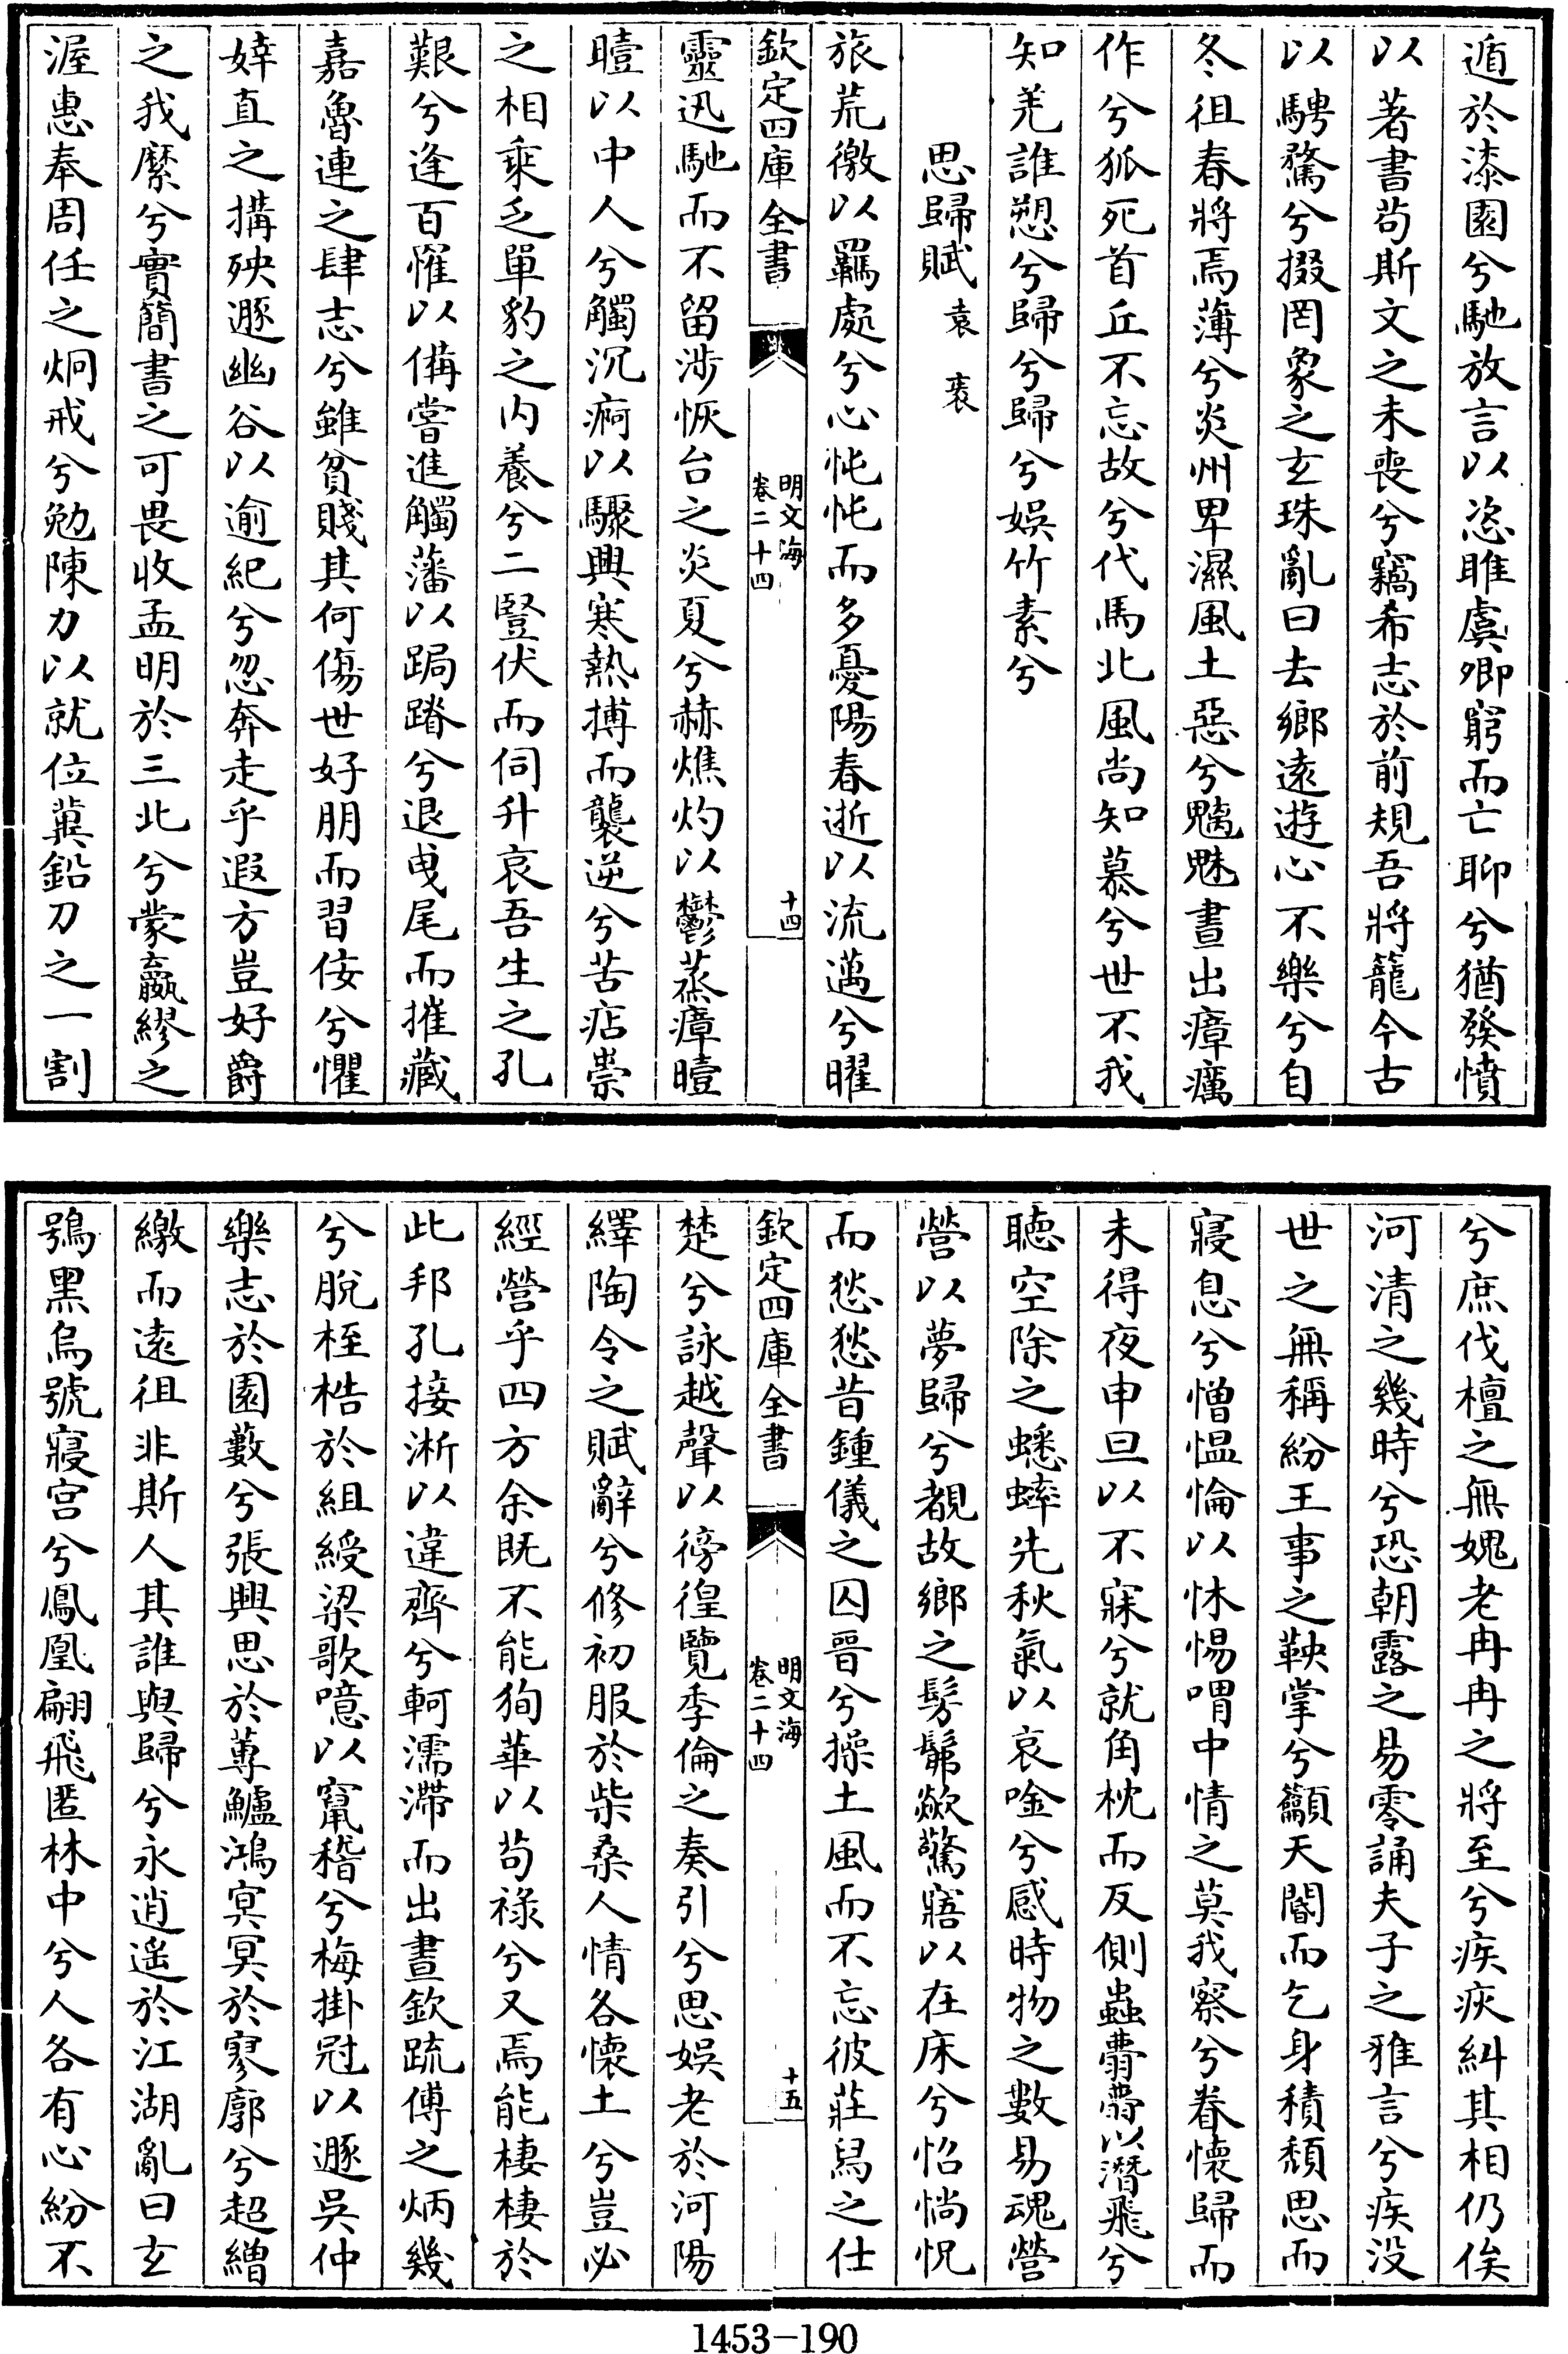 遁於漆園兮馳放言以恣睢虞卿窮而亡聊兮猶發憤
以著書茍斯文之未喪兮竊希志於前規吾將籠今古
以騁騖兮掇罔象之玄珠亂曰去鄉逺遊心不樂兮自
冬徂春將焉薄兮炎州卑濕風土惡兮魑魅晝出瘴癘
作兮狐死首丘不忘故兮代馬北風尚知慕兮世不我
知羌誰愬兮歸兮歸兮娯竹素兮
思歸賦 袁袠
旅荒徼以羈處兮心忳忳而多憂陽春逝以流邁兮曜
欽定四庫全書 明文海 卷二十四 十四
靈迅馳而不留渉恢台之炎夏兮赫燋灼以鬱蒸瘴曀
曀以中人兮觸沉痾以驟興寒熱搏而襲逆兮苦痁祟
之相乘乏單豹之内養兮二豎伏而伺升哀吾生之孔
艱兮逢百罹以備嘗進觸藩以跼蹐兮退曵尾而摧藏
嘉魯連之肆志兮雖貧賤其何傷世好朋而習佞兮懼
婞直之搆殃遯幽谷以逾紀兮忽奔走乎遐方豈好爵
之我縻兮實簡書之可畏收孟明於三北兮蒙嬴繆之
渥惠奉周任之炯戒兮勉陳力以就位冀鉛刀之一割
兮庶伐檀之無媿老冉冉之將至兮疾疢糾其相仍俟
河清之幾時兮恐朝露之易零誦夫子之雅言兮疾没
世之無稱紛王事之鞅掌兮籲天閽而乞身積頽思而
寝息兮憎愠惀以怵惕喟中情之莫我察兮眷懐歸而
未得夜申旦以不寐兮就角枕而反側蟲薨薨以潛飛兮
聴空除之蟋蟀先秋氣以哀唫兮感時物之數易魂營
營以夢歸兮覩故鄉之髣髴歘驚寤以在床兮怊惝怳
而愁愁昔鍾儀之囚晋兮操土風而不忘彼莊舄之仕
欽定四庫全書 明文海 卷二十四 十五
楚兮詠越聲以徬徨覽季倫之奏引兮思娯老於河陽
繹陶令之賦辭兮修初服於柴桑人情各懐土兮豈必
經營乎四方余既不能狥華以茍禄兮又焉能棲棲於
此邦孔接淅以違齊兮軻濡滯而出晝欽疏傅之炳幾
兮脱桎梏於組綬梁歌噫以竄稽兮梅掛冠以遯吳仲
樂志於園藪兮張興思於蓴鱸鴻㝠冥於寥廓兮超繒
繳而逺徂非斯人其誰與歸兮永逍遥於江湖亂曰玄
鶚黒烏號寝宫兮鳳凰翩飛匿林中兮人各有心紛不
1453-190